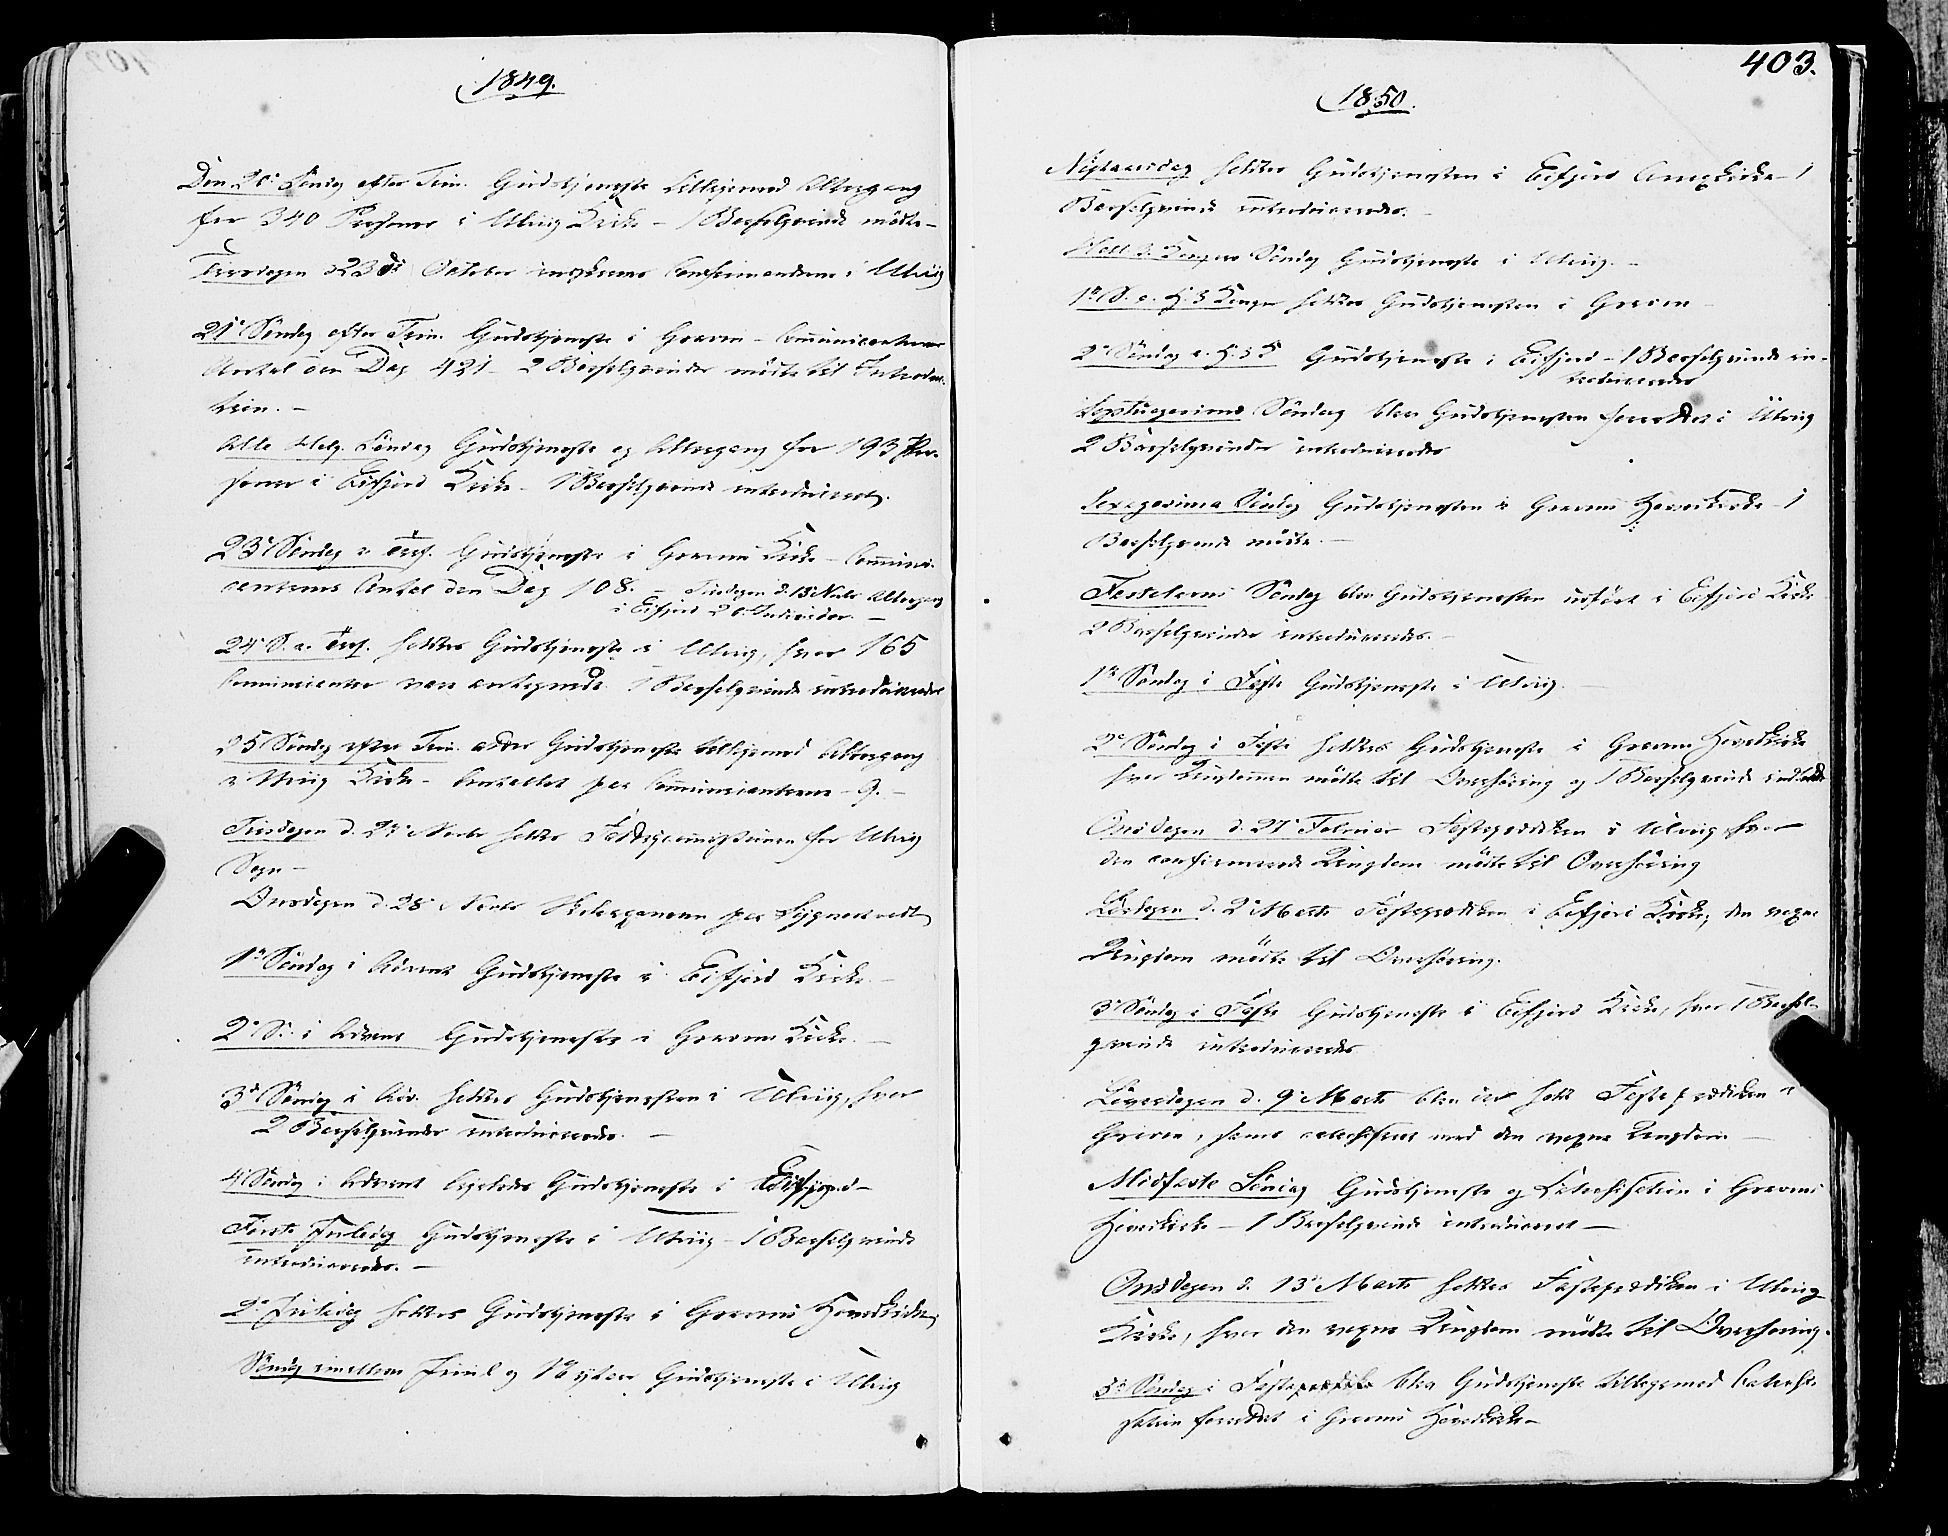 1849.
Den 20de Søndag efter Trin. Gudstjeneste tilligemed Altergang
for 340 Personer i Ulvig Kirke – 1 Barselqvinde mødte –
Tirsdagen d 23de October Confirmanderne i Ulvig
21de Søndag efter Trin. Gudstjeneste i Graven – Communicanternes
Antal den Dag 421 – 2 Barselqvinder mødte til Introduc-
tion. –
Alle Helg. Søndag Gudstjeneste og Altergang for 193 Per-
soner i Eifjord Kirke – 1 Barselqvinde introduceret.
23de Søndag e. Tref. Gudstjeneste i Gravens Kirke – Communi-
canternes Antal den Dag 108. – Tirsdagen d. 13 Novbr Altergang
i Eifjord 26 Individer. –
24de S. e. Tref. holdtes Gudstjeneste i Ulvig, hvor 165
Communicanter vare antegnede 1 Barselqvinde introduceredes
25 Søndag efter Trin. atter Gudstjeneste tilligemed Altergang
i Ulvig Kirke – Antallet paa Communicanterne 9. –
Tirsdagen d. 27de Novbr holdtes Fattigcommissionen for Ulvig
Sogn –
Onsdagen d. 28de Novbr paa
1ste Søndag i Advent Gudstjeneste i Eifjord Kirke. –
2den S. i Advent Gudstjeneste i Gravens Kirke. –
3die Søndag i Adv. holdtes Gudstjenesten i Ulvig, hvor
2 Barselqvinder introduceredes. –
4de Søndag i Advent Gudstjeneste i Eifjord –
Første Juledag Gudstjeneste i Ulvig – 1 Barselqvinde
introduceredes. –
2den Juledag holdtes Gudstjeneste i Gravens Hovedkirke
Søndag imellem Juul og Nytaar Gudstjeneste i Ulvig
403.
1850.
Nytaarsdag holdtes Gudstjenesten i Eifjord Annexkirke – 1
Barselqvinde introduceredes. –
Hell. 3 Kongers Søndag Gudstjeneste i Ulvig. –
1ste S. e. H. 3 Konger holdtes Gudstjenesten i Graven –
2den Søndag e. H. 3 K Gudstjeneste i Eifjord – 1 Barselqvinde in-
troduceredes
Septuagesima Søndag blev Gudstjenesten forrettet i Ulvig
2 Barselqvinder introduceredes
Sexagesima Søndag Gudstjenesten i Gravens Hovedkirke – 1
Barselqvinde mødte. –
Fastelavns Søndag blev Gudstjenesten udført i Eifjord Kirke
2 Barselqvinder introduceredes. –
1ste Søndag i Faste Gudstjeneste i Ulvig. –
2den Søndag i Faste holdtes Gudstjeneste i Gravens Hovedkirke
hvor Ungdommen mødte til Overhøring og 1 Barselqvinde indledtes
Onsdagen d. 27de Februar Fasteprædiken i Ulvig hvor
den confirmerede Ungdom mødte til Overhøring
Løverdagen d. 2den Marts Fasteprædiken i Eifjord Kirke, den voxne
Ungdom mødte til Overhøring.
3die Søndag i Faste Gudstjeneste i Eifjord Kirke, hvor 1 Barsel-
qvinde introduceredes
Løverdagen d. 9de Marts blev der holdt Fasteprædiken i
Graven, samt catechiseret med den voxne Ungdom –
Midfaste Søndag Gudstjeneste og Catechisation i Gravens
Hovedkirke – 1 Barselqvinde introduceret –
Onsdagen d. 13de Marts holdtes Fasteprædiken i Ulvig
Kirke, hvor den voxne Ungdom mødte til Overhøring.
5te Søndag i Faste blev Gudstjeneste tilligemed Catechi-
sation forrettet i Gravens Hovedkirke –